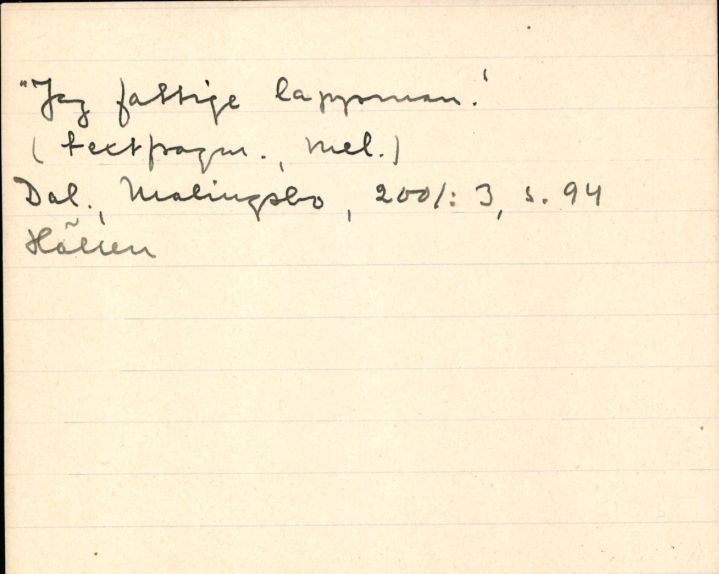 "Jag fattige lappman."
(textfragm., mel.)
Dal., Malingsbo, 2001: 3, s. 94